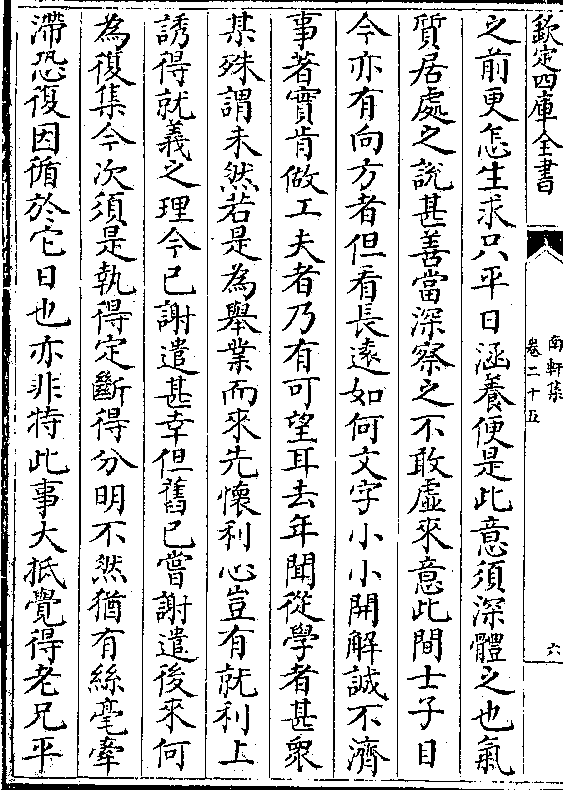 欽定四庫全書
南軒集
卷二十五
六
之前更怎生求只平日涵養便是此意須深體之也氣
質居處之說甚善當深察之不敢虛來意此間士子日
今亦有向方者但看長遠如何文字小小開解誠不濟
事著實肯做工夫者乃有可望耳去年聞從學者甚衆
某殊謂未然若是為舉業而來先懷利心豈有就利上
誘得就義之理今已謝遣甚幸但舊已嘗謝遣後來何
為復集今次須是執得定斷得分明不然猶有絲毫牽
滯恐復因循於它日也亦非特此事大抵覺得老兄平